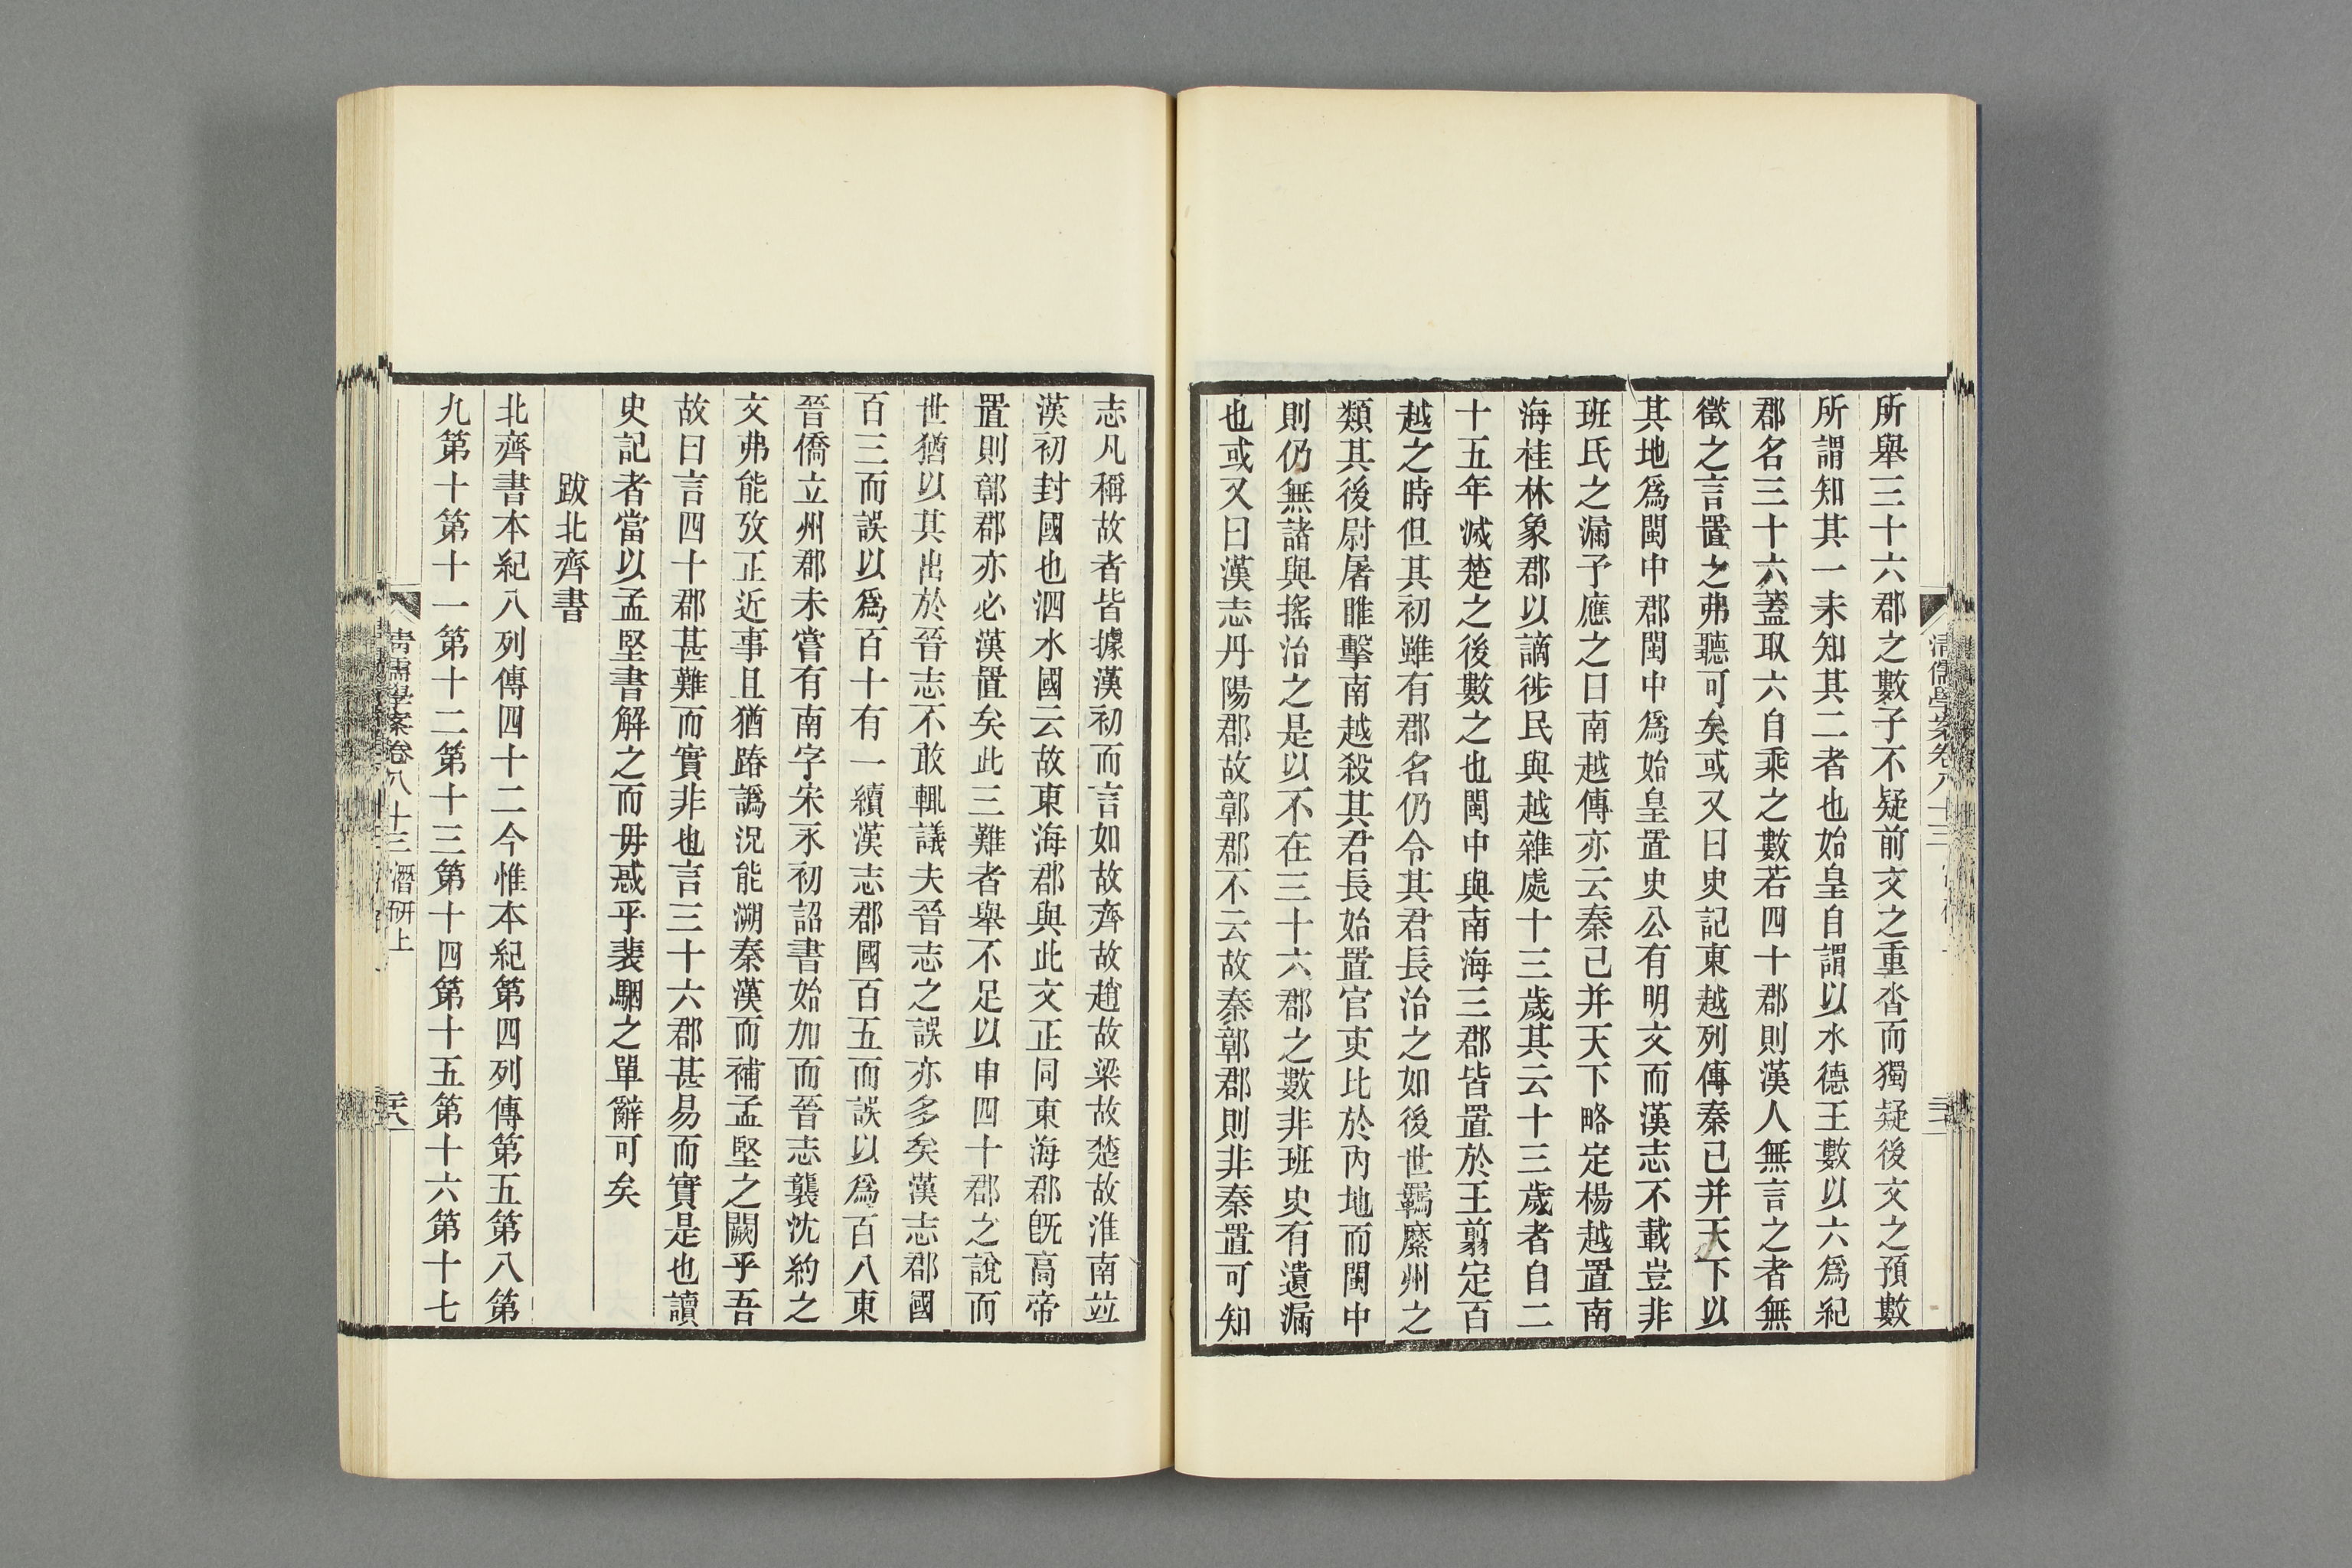 所舉三十六郡之數子不疑前文之重沓而獨疑後文之預數
所謂知其一未知其二者也始皇自謂以水德王數以六爲紀
郡名三十六蓋取六自乘之數若四十郡則漢人無言之者無
徵之言置之弗聽可矣或又曰史記東越列傳秦已并天下以
其地爲閩中郡閩中爲始皇置史公有明文而漢志不載豈非
班氏之漏予應之曰南越傳亦云秦已并天下略定楊越置南
海桂林象郡以謫徙民與越雜處十三歲其云十三歲者自二
十五年滅楚之後數之也閩中與南海三郡皆置於王翦定百
越之時但其初雖有郡名仍令其君長治之如後世羈縻州之
類其後尉屠睢擊南越殺其君長始置官吏比於內地而閩中
則仍無諸與搖治之是以不在三十六郡之數非班史有遺漏
也或又曰漢志丹陽郡故鄣郡不云故秦鄣郡則非秦置可知
志凡稱故者皆據漢初而言如故齊故趙故梁故楚故淮南竝
漢初封國也泗水國云故東海郡與此文正同東海郡旣高帝
置則鄣郡亦必漢置矣此三難者舉不足以申四十郡之說而
世猶以其出於晉志不敢輒議夫晉志之誤亦多矣漢志郡國
百三而誤以爲百十有一續漢志郡國百五而誤以爲百八東
晉僑立州郡未嘗有南字宋永初詔書始加而晉志襲沈約之
文弗能攷正近事且猶踳譌況能溯秦漢而補孟堅之闕乎吾
故曰言四十郡甚難而實非也言三十六郡甚易而實是也讀
史記者當以孟堅書解之而毋惑乎裴駰之單辭可矣
跋北齊書
北齊書本紀八列傳四十二今惟本紀第四列傳第五第八第
九第十第十一第十二第十三第十四第十五第十六第十七
清儒學案卷八十三 潛研上